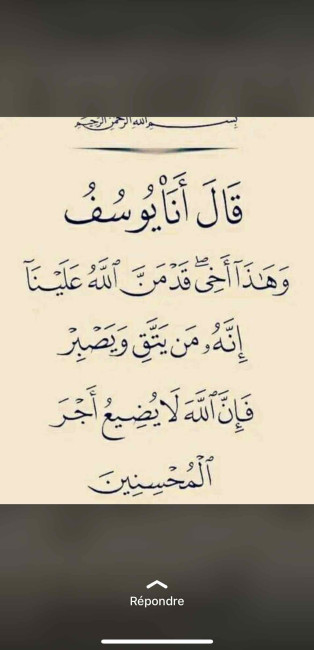 بِسْمِ اللهِ الرَّحْمٰنِ الرَّحِيمِ
قَالَ أَنَا۠ يُوسُفُ
وَهَٰذَآ أَخِى ۖ قَدْ مَنَّ ٱللَّهُ عَلَيْنَآ
إِنَّهُۥ مَن يَتَّقِ وَيَصْبِرْ
فَإِنَّ ٱللَّهَ لَا يُضِيعُ أَجْرَ
ٱلْمُحْسِنِينَ
Répondre